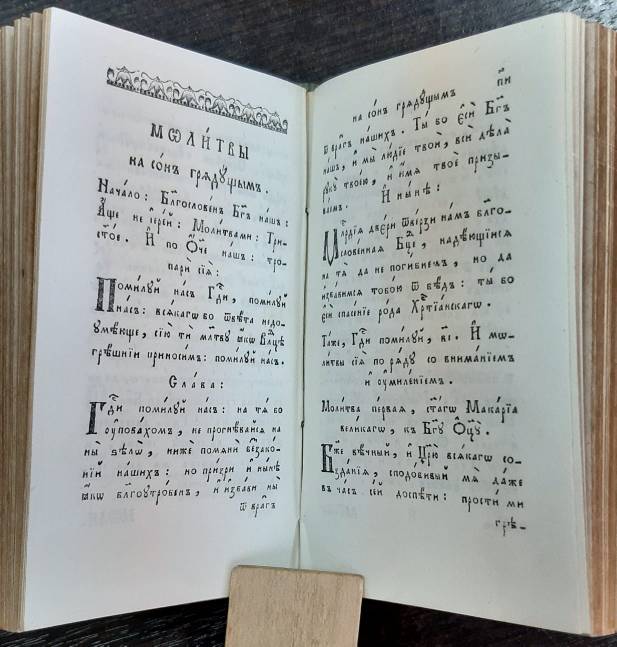 МѠЛИ́ТВЫ
на со́нъ грядꙋ́щымъ.
Нача́ло: Бл҃гослове́нъ Бг҃ъ на́шъ:
А҆́ще не і҆ере́й: Моли́твами: Три-
ст҃о́е. И҆ по Ѻ҆́ч҃е на́шъ: тро-
пари̑ сїѧ̑:
Поми́лꙋй на́съ Гд҇и, поми́лꙋй
на́съ: всѧ́кагѡ бо ѿвѣ́та недо-
ꙋмѣ́юще, сїю́ ти мл҃твꙋ ꙗ҆́кѡ Влⷣцѣ
грѣ́шнїи прино́симъ: поми́лꙋй на́съ.
Сла́ва:
Гд҇и поми́лꙋй на́съ: на тѧ́ бо
ᲂу҆пова́хомъ, не прогнѣ́вайсѧ на
ны̀ ѕѣлѡ̀, ниже́ помѧнѝ беззако́-
нїй на́шихъ: но при́зри и҆ ны́нѣ
ꙗ҆́кѡ бл҃гоꙋтро́бенъ, и҆ и҆зба́ви ны̀
ѿ вра̑гъ
на со́нъ грядꙋ́щымъ
пи
ѿ вра̑гъ на́шихъ. Ты́ бо є҆сѝ Бг҃ъ
на́шъ, и҆ мы̀ лю́дїе твоѝ, всѝ дѣла̀
рꙋкꙋ̀ твоє́ю, и҆ и҆́мѧ твоѐ призы-
ва́емъ.
И҆ ны́нѣ:
Млⷭ҇рдїѧ две́ри ѿве́рзи на́мъ бл҃го-
слове́ннаѧ Бц҃е, надѣ́ющїисѧ
на тѧ̀ да не поги́бнемъ, но да
и҆зба́вимсѧ тобо́ю ѿ бѣ́дъ: ты́ бо
є҆сѝ спасе́нїе ро́да Хрⷭ҇тїа́нскагѡ.
Та́же, Гд҇и поми́лꙋй, в҃і. И҆ мѡ-
ли́твы сїѧ̑ по рѧ́дꙋ со внима́нїемъ
и҆ ᲂу҆миле́нїемъ.
Моли́тва пе́рваѧ, ст҃а́гѡ Мака́рїа
вели́кагѡ, къ Бг҃ꙋ Ѻ҆ц҃ꙋ̀.
Бж҃е вѣ́чный, и҆ Цр҃ю̀ всѧ́кагѡ со-
зда́нїѧ, сподо́бивый мѧ̀ да́же
въ ча́съ се́й доспѣ́ти: прости́ ми
грѣ-